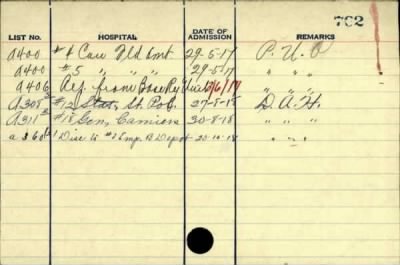 702
LIST NO. HOSPITAL DATE OF ADMISSION REMARKS
A400 #4 Can Fld Amb. 29-5-17 P.U.O
A400 #5 " " " 29-5-17 " " "
A406 Rej. from Base 2/6/17
A308 #12 Stat, St Pol. 27-8-18 D.A.H.
A311 #18 Gen, Camiers 30-8-18 " " "
a 360 Disc to #2 Emp. B Depot 20-10-18 " " "